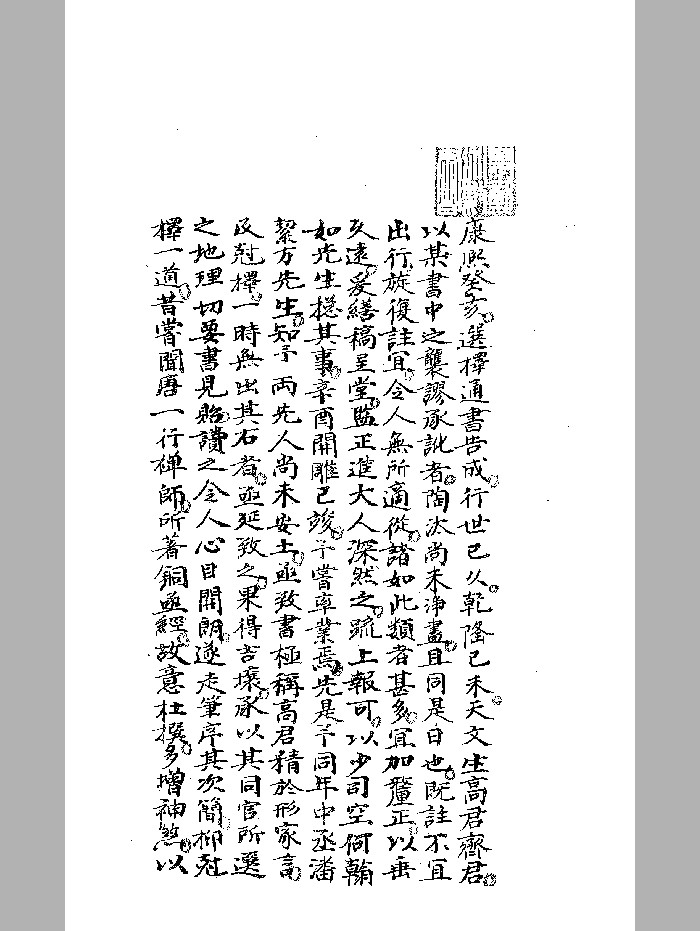 康熙癸亥選擇通書告成行世已久乾隆己未天文生高君齊君
以某書中之襲謬承訛者陶汰尚未淨盡且同是日也既註不宜
出行旋復註宜令人無所適從諸如此類者甚多宜加釐正以垂
久遠爰繕稿呈堂監正進大人深然之疏上報可以少司空何翰
如先生摠其事辛酉開雕已竣予嘗卒業焉先是予同年中丞潘
絜方先生知予兩先人尚未安土亟致書極稱高君精於形家言
及尅擇一時無出其右者亟延致之果得吉壤承以其同官所選
之地理切要書見貽讀之令人心目開朗遂走筆序其次簡抑尅
擇一道昔嘗聞唐一行禅師所著銅函經故意杜撰多增神煞以